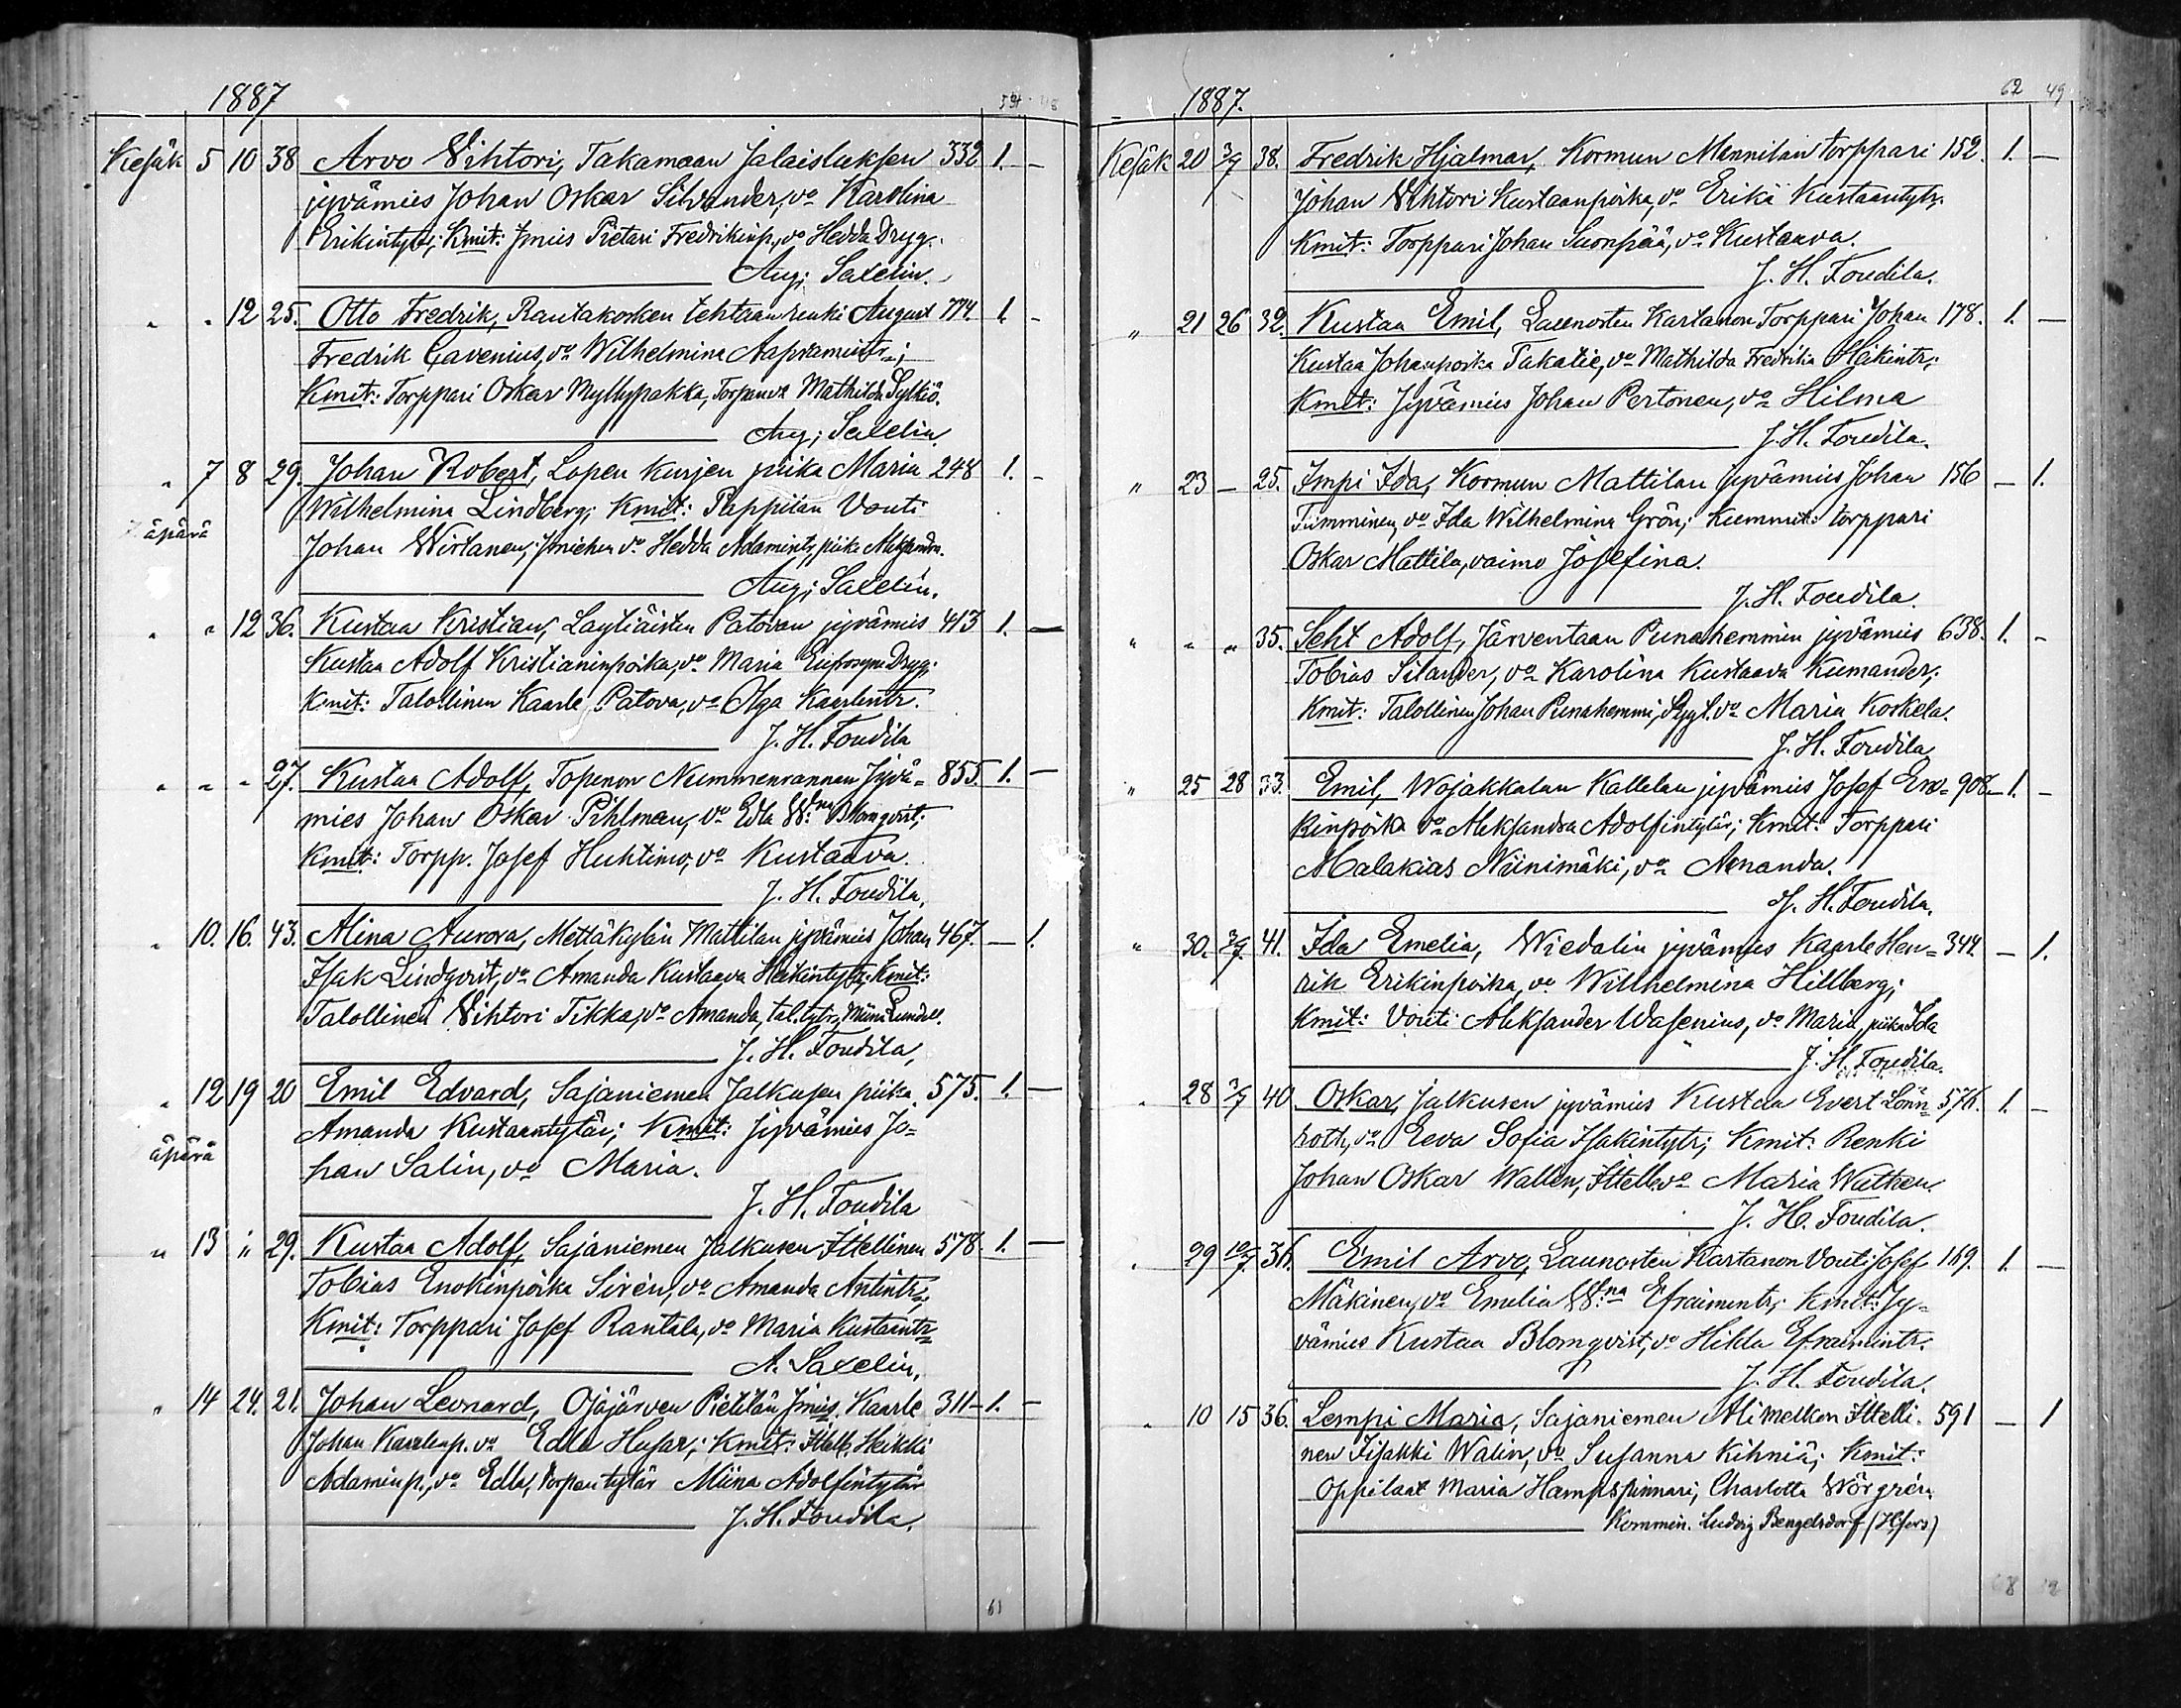 1887
Kesäk 5 10 38 Arvo Vihtori, Takamaan Jalaistuksen 332 1. —
jyvämies Johan Oskar Silvander, vo Karolina
Erikintytr; Kmit: Jmies Pietari Fredrikinp, vo Hedda Dryg.
Aug; Saxelin.
" " 12 25. Otto Fredrik, Rautakosken tehtaan renki August 774. 1. -
Fredrik Gavenius, vo Wilhelmina
Kmit: Torppari Oskar Myllypakka, Mathilda Sylkiö.
Aug; Saxelin.
" 7 8 29. Johan Robert, Lopen Kurjen piika Maria 248 1. -
Wilhelmina Lindberg; Kmit: Pappilan Vouti
äpärä
Johan Wirtanen; vo Hedda Adamintr, piika
Aug; Saxelin.
" " 12 36. Kustaa Kristian, Laytiäisten Patovan jyvämies 413 1. —
Kustaa Adolf Kristianinpoika, vo Maria Eufrosyne Dryg;
Kmit: Talollinen Kaarle Patova, vo Olga Kaarlentr.
J. H. Toudila
" " " 27. Kustaa Adolf, Topenon Nummenrannan Jyvä= 855. 1. —
mies Johan Oskar Pihlman, vo Edla W:na Blomqvist;
Kmit: Torpp. Josef Huhtimo, vo Kustaava.
J. H. Toudila,
" 10. 16. 43. Alina Aurora, Mettäkylän Mattilan jyvämies Johan 467. — 1.
Isak Lindqvist, vo Amanda Kustaava Heikintytr; Kmit:
Talollinen Vihtori Tikka, vo Amanda, tal. tytr, Miina
J. H. Toudila,
" 12 19 20 Emil Edvard, Sajaniemen Jalkusen piika 575. 1. —
Amanda Kustaantytär; Kmit: Jyvämies Jo=
äpärä
han Salin, vo Maria.
J. H. Toudila
" 13 " 29. Kustaa Adolf, Sajaniemen Jalkusen Ittellinen 578. 1. —
Tobias Enokinpoika Sirén, vo Amanda Antintr;
Kmit: Torppari Josef Rantala, vo Maria Kustaantr
A. Saxelin,
" 14 24. 21. Johan Leonard, Ojajärven Pietilän Jmies. Kaarle 311 — 1. -
Johan Kaarlenp. vo Edla Husar; Kmit: Ittell. Heikki
Adaminp., vo Edla, torpantytär Miina Adolfintytär
J. H. Toudila.
61
62 49
1887.
Kesäk 20 3/7 38. Fredrik Hjalmar, Kormun Mannilan torppari 152. 1. —
Johan Vihtori Kustaanpoika, vo Erika Kustaantytr.
Kmit: Torppari Johan Suonpää, vo Kustaava.
J. H. Toudila.
" 21 26 32. Kustaa Emil, Launosten Kartanon Torppari Johan 178. 1. —
Kustaa Johanpoika Takatie, vo Mathilda Fredrika Heikintr;
Kmit: Jyvämies Johan Pertonen, vo Hilma
J. H. Toudila.
" 23 — 25. Impi Ida, Kormun Mattilan jyvämies Johan 156 — 1.
Timminen, vo Ida Wilhelmina Grön; Kummit: torppari
Oskar Mattila, vaimo Josefina.
J. H. Toudila.
" " " 35. Seht Adolf, Järventaan Punahemmin jyvämies 638. 1. -
Tobias Silander, vo Karolina Kustaava Kumander;
Kmit: Talollinen Johan Punahemmi, vo Maria Koskela.
J. H. Toudila
" 25 28 33. Emil, Wojakkalan Kallelan jyvämies Josef Eno= 908. 1. -
kinpoika vo Aleksandra Adolfintytär; Kmit: Torppari
Malakias Niinimäki, vo Amanda.
J. H. Toudila.
" 30. 3/7. 41. Ida Emelia, Wiedalin jyvämies Kaarle Hen= 344. — 1.
rik Erikinpoika, vo Willhelmina Hillberg;
Kmit: Vouti Aleksander Wasenius, vo Maria, piika Ida
J. H. Toudila.
" 28 3/7 40. Oskar, Jalkusen jyvämies Kustaa Evert Lönn= 576. 1. -
roth, vo Eeva Sofia Isakintytr; Kmit: Renki
Johan Oskar Wallen, Ittell. vo Maria
J. H. Toudila.
" 29 10/7. 36. Emil Arvo, Launosten Kartanon Vouti Josef 169. 1. —
Mäkinen, vo Emelia W:na Efraimintr; Kmit: Jy=
vämies Kustaa Blomqvist, vo Hilda Efraimintr.
J. H. Toudila.
" 10 15 36. Lempi Maria, Sajaniemen Alimelkon Ittelli= 591 — 1
nen Iisakki Walin, vo Susanna Kihniä; Kmit:
Oppilaat Maria Hampspinnari, Charlotta Wörgrén.
Kommin. Ludvig Bengelsdorf (Hfors)